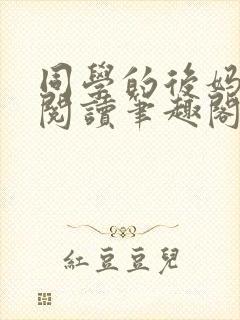 同學的後媽
閱讀筆趣閣
紅豆豆兒